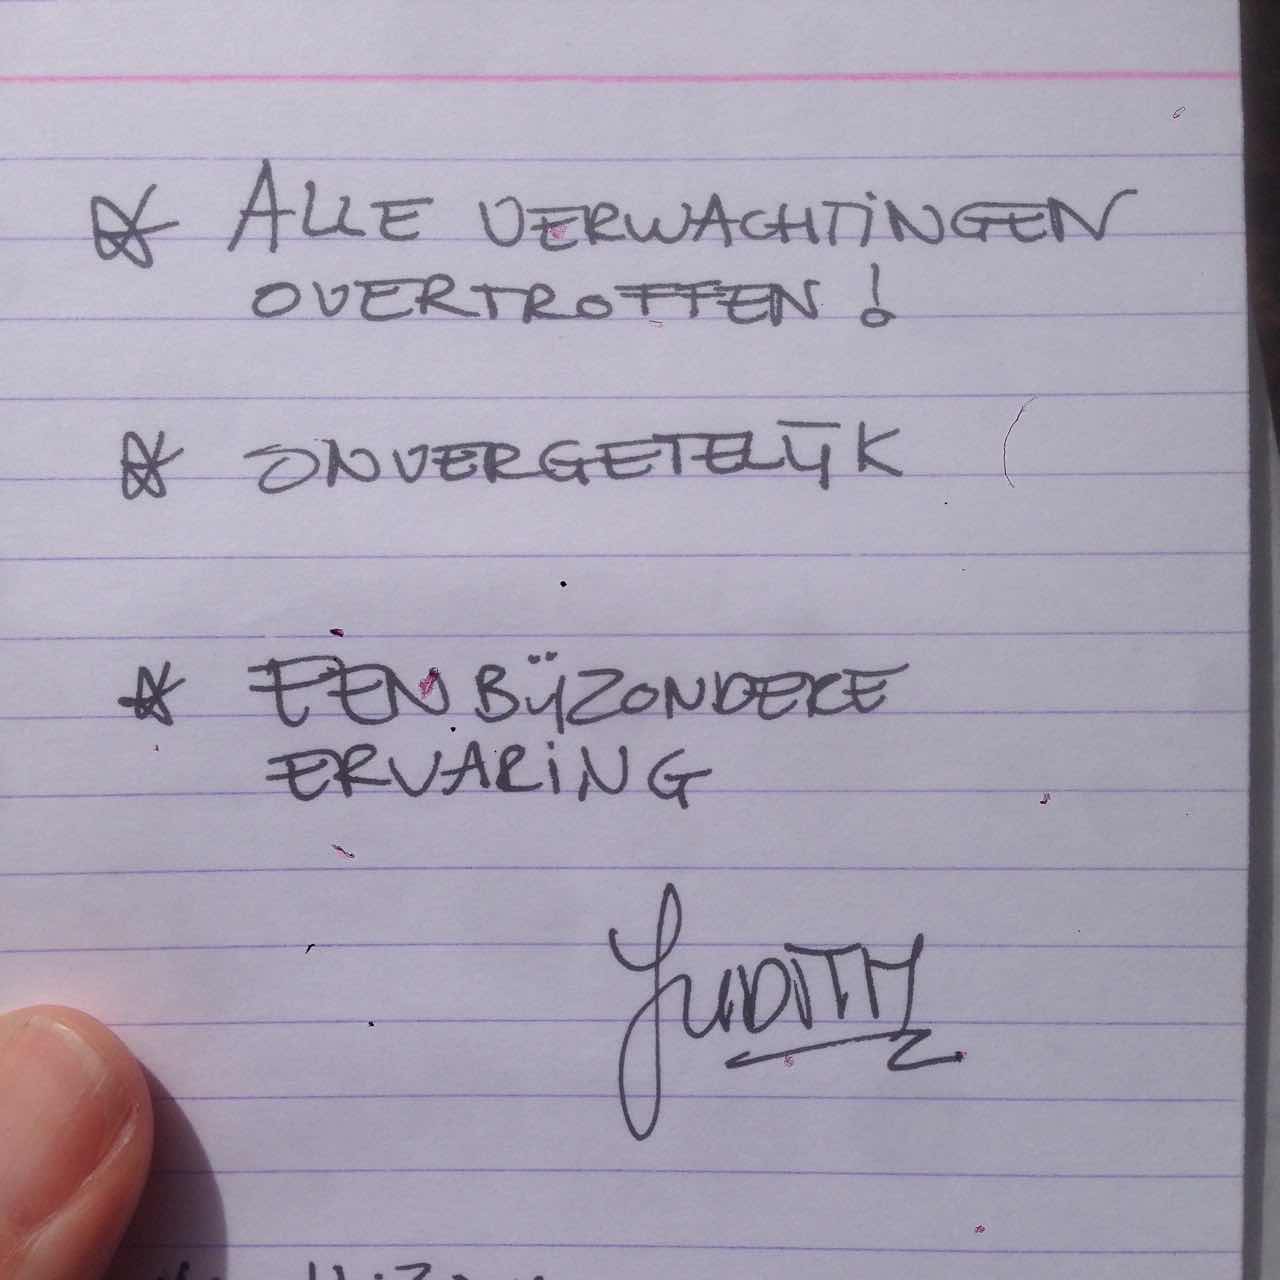 ☆ ALLE VERWACHTINGEN
OVERTROFFEN!
☆ ONVERGETELIJK
☆ EEN BIJZONDERE
ERVARING
JUDITH